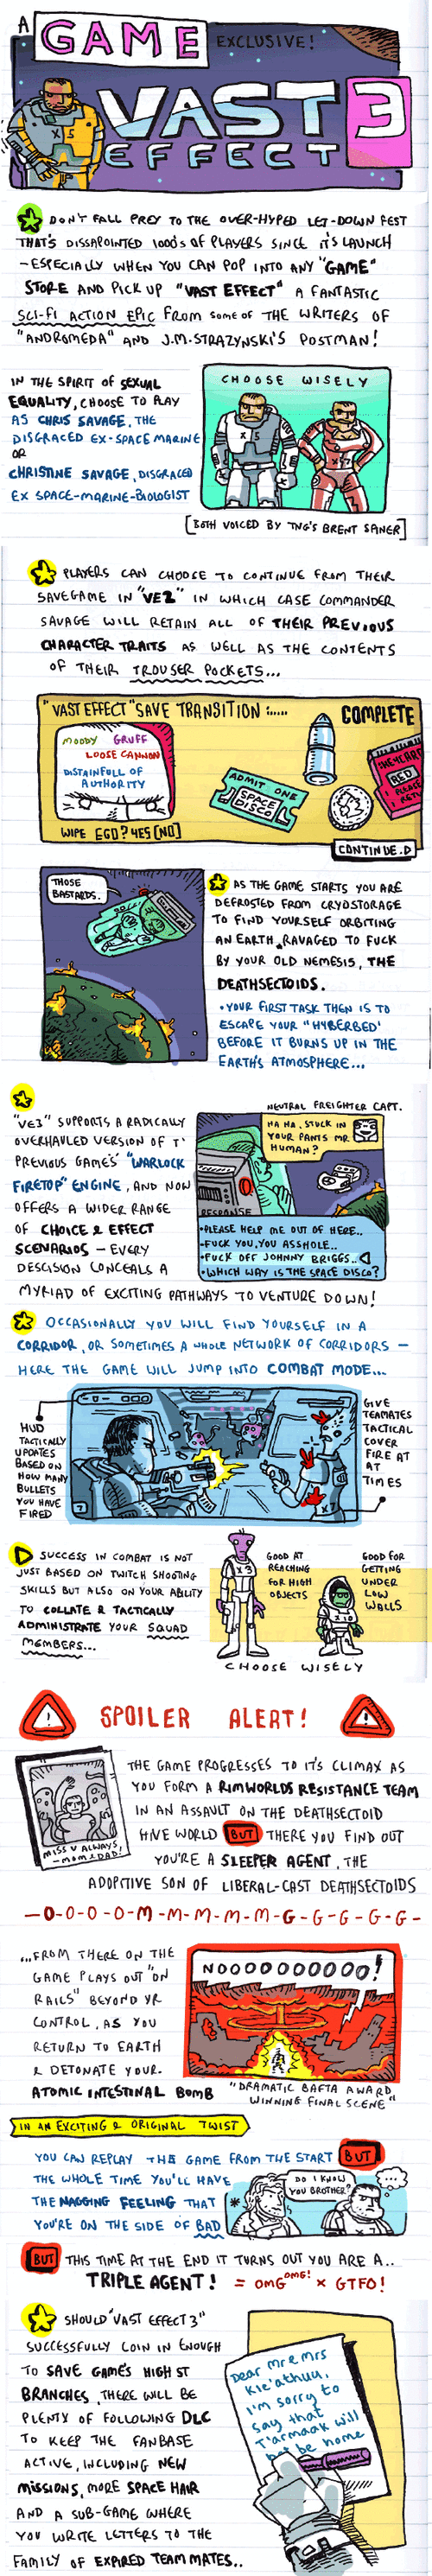 A
GAME
EXCLUSIVE!
VAST
EFFECT
3
X5
DON'T FALL PREY TO THE OVER-HYPED LET-DOWN FEST
THAT'S DISSAPOINTED 1000s OF PLAYERS SINCE IT'S LAUNCH
- ESPECIALLY WHEN YOU CAN POP INTO ANY "GAME"
STORE AND PICK UP "VAST EFFECT" A FANTASTIC
SCI-FI ACTION EPIC FROM SOME OF THE WRITERS OF
"ANDROMEDA" AND J.M.STRAZYNSKI'S POSTMAN!
IN THE SPIRIT OF SEXUAL
EQUALITY, CHOOSE TO PLAY
AS CHRIS SAVAGE, THE
DISGRACED EX-SPACE MARINE
OR
CHRISTINE SAVAGE, DISGRACED
EX SPACE-MARINE-BIOLOGIST
CHOOSE WISELY
X5
X7
[BOTH VOICED BY TNG'S BRENT SANER]
PLAYERS CAN CHOOSE TO CONTINUE FROM THEIR
SAVEGAME IN "VE2" IN WHICH CASE COMMANDER
SAVAGE WILL RETAIN ALL OF THEIR PREVIOUS
CHARACTER TRAITS AS WELL AS THE CONTENTS
OF THEIR TROUSER POCKETS...
"VAST EFFECT" SAVE TRANSITION :...... COMPLETE
MOODY GRUFF
LOOSE CANNON
DISTAINFULL OF
AUTHORITY
ADMIT ONE
SPACE
DISCO
RED
WIPE EGO? YES [NO]
CONTINUE.D
THOSE
BASTARDS.
AS THE GAME STARTS YOU ARE
DEFROSTED FROM CRYOSTORAGE
TO FIND YOURSELF ORBITING
AN EARTH RAVAGED TO FUCK
BY YOUR OLD NEMESIS, THE
DEATHSECTOIDS.
• YOUR FIRST TASK THEN IS TO
ESCAPE YOUR "HYBERBED"
BEFORE IT BURNS UP IN THE
EARTH'S ATMOSPHERE...
"VE3" SUPPORTS A RADICALLY
OVERHAULED VERSION OF T'
PREVIOUS GAMES' "WARLOCK
FIRETOP" ENGINE, AND NOW
OFFERS A WIDER RANGE
OF CHOICE & EFFECT
SCENARIOS - EVERY
DESCISION CONCEALS A
MYRIAD OF EXCITING PATHWAYS TO VENTURE DOWN!
NEUTRAL FREIGHTER CAPT.
HA HA. STUCK IN
YOUR PANTS MR
HUMAN?
RESPONSE
• PLEASE HELP ME OUT OF HERE..
- FUCK YOU, YOU ASSHOLE..
• FUCK OFF JOHNNY BRIGGS..
• WHICH WAY IS THE SPACE DISCO?
OCCASIONALLY YOU WILL FIND YOURSELF IN A
CORRIDOR, OR SOMETIMES A WHOLE NETWORK OF CORRIDORS -
HERE THE GAME WILL JUMP INTO COMBAT MODE...
HUD
TACTICALLY
UPDATES
BASED ON
HOW MANY
BULLETS
YOU HAVE
FIRED
GIVE
TEAMATES
TACTICAL
COVER
FIRE AT
AT
TIMES
X7
SUCCESS IN COMBAT IS NOT
JUST BASED ON TWITCH SHOOTING
SKILLS BUT ALSO ON YOUR ABILITY
TO COLLATE & TACTICALLY
ADMINISTRATE YOUR SQUAD
MEMBERS...
X3
GOOD AT
REACHING
FOR HIGH
OBJECTS
GOOD FOR
GETTING
UNDER
LOW
WALLS
CHOOSE WISELY
SPOILER ALERT!
THE GAME PROGRESSES TO IT'S CLIMAX AS
YOU FORM A RIMWORLDS RESISTANCE TEAM
IN AN ASSAULT ON THE DEATHSECTOID
HIVE WORLD BUT THERE YOU FIND OUT
YOU'RE A SLEEPER AGENT, THE
ADOPTIVE SON OF LIBERAL-CAST DEATHSECTOIDS
MISS U ALWAYS,
-MOM & DAD!
-O-O-O-O-M-M-M-M-M-G-G-G-G-G-
...FROM THERE ON THE
GAME PLAYS OUT "ON
RAILS" BEYOND YR
CONTROL, AS YOU
RETURN TO EARTH
& DETONATE YOUR
ATOMIC INTESTINAL BOMB
NOOOOOOOOOOO!
"DRAMATIC BAFTA AWARD
WINNING FINAL SCENE"
IN AN EXCITING & ORIGINAL TWIST
YOU CAN REPLAY THE GAME FROM THE START BUT
THE WHOLE TIME YOU'LL HAVE
THE NAGGING FEELING THAT
YOU'RE ON THE SIDE OF BAD
DO I KNOW
YOU BROTHER?
...
BUT THIS TIME AT THE END IT TURNS OUT YOU ARE A..
TRIPLE AGENT! = OMG OMG! x GTFO!
SHOULD "VAST EFFECT 3"
SUCCESSFULLY COIN IN ENOUGH
TO SAVE GAME'S HIGH ST
BRANCHES, THERE WILL BE
PLENTY OF FOLLOWING DLC
TO KEEP THE FANBASE
ACTIVE, INCLUDING NEW
MISSIONS, MORE SPACE HAIR
AND A SUB-GAME WHERE
YOU WRITE LETTERS TO THE
FAMILY OF EXPIRED TEAM MATES..
Dear mr & mrs
Kle'athuu,
I'm sorry to
say that
T'armaak will
not be home